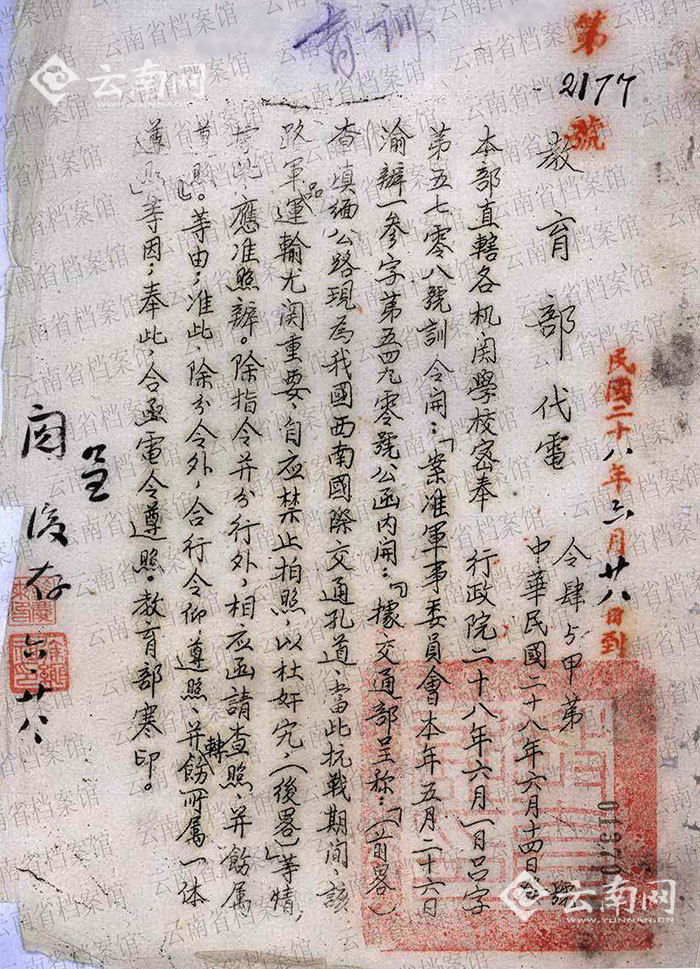 育訓
第
2177
號
教育部代電
令肆與甲第
號
01570
民國二十八年六月廿八日到
中華民國二十八年六月十四日
本部直轄各机関學校密奉　行政院二十八年六月一日呂字
第五七零八號訓令開：「案准軍事委員會本年五月二十六日
渝辦一参字第五四九零號公函內開：『據交通部呈称：「（前畧）
查滇緬公路現為我國西南國際交通孔道、當此抗戰期间、該
路軍品運輸尤関重要、自应禁止拍照、以杜奸宄、（後畧）」等情
據此、應准照辦。除指令并分行外、相应函請查照、并飭属
遵照』。等由；准此、除分令外、合行令仰遵照、并轉飭所属一体
遵照」等因；奉此、合亟電令遵照。教育部寒印。
呈
閱後存
六、廿八
云南网
云南网
WWW.YUNNAN.CN
云南省档案馆